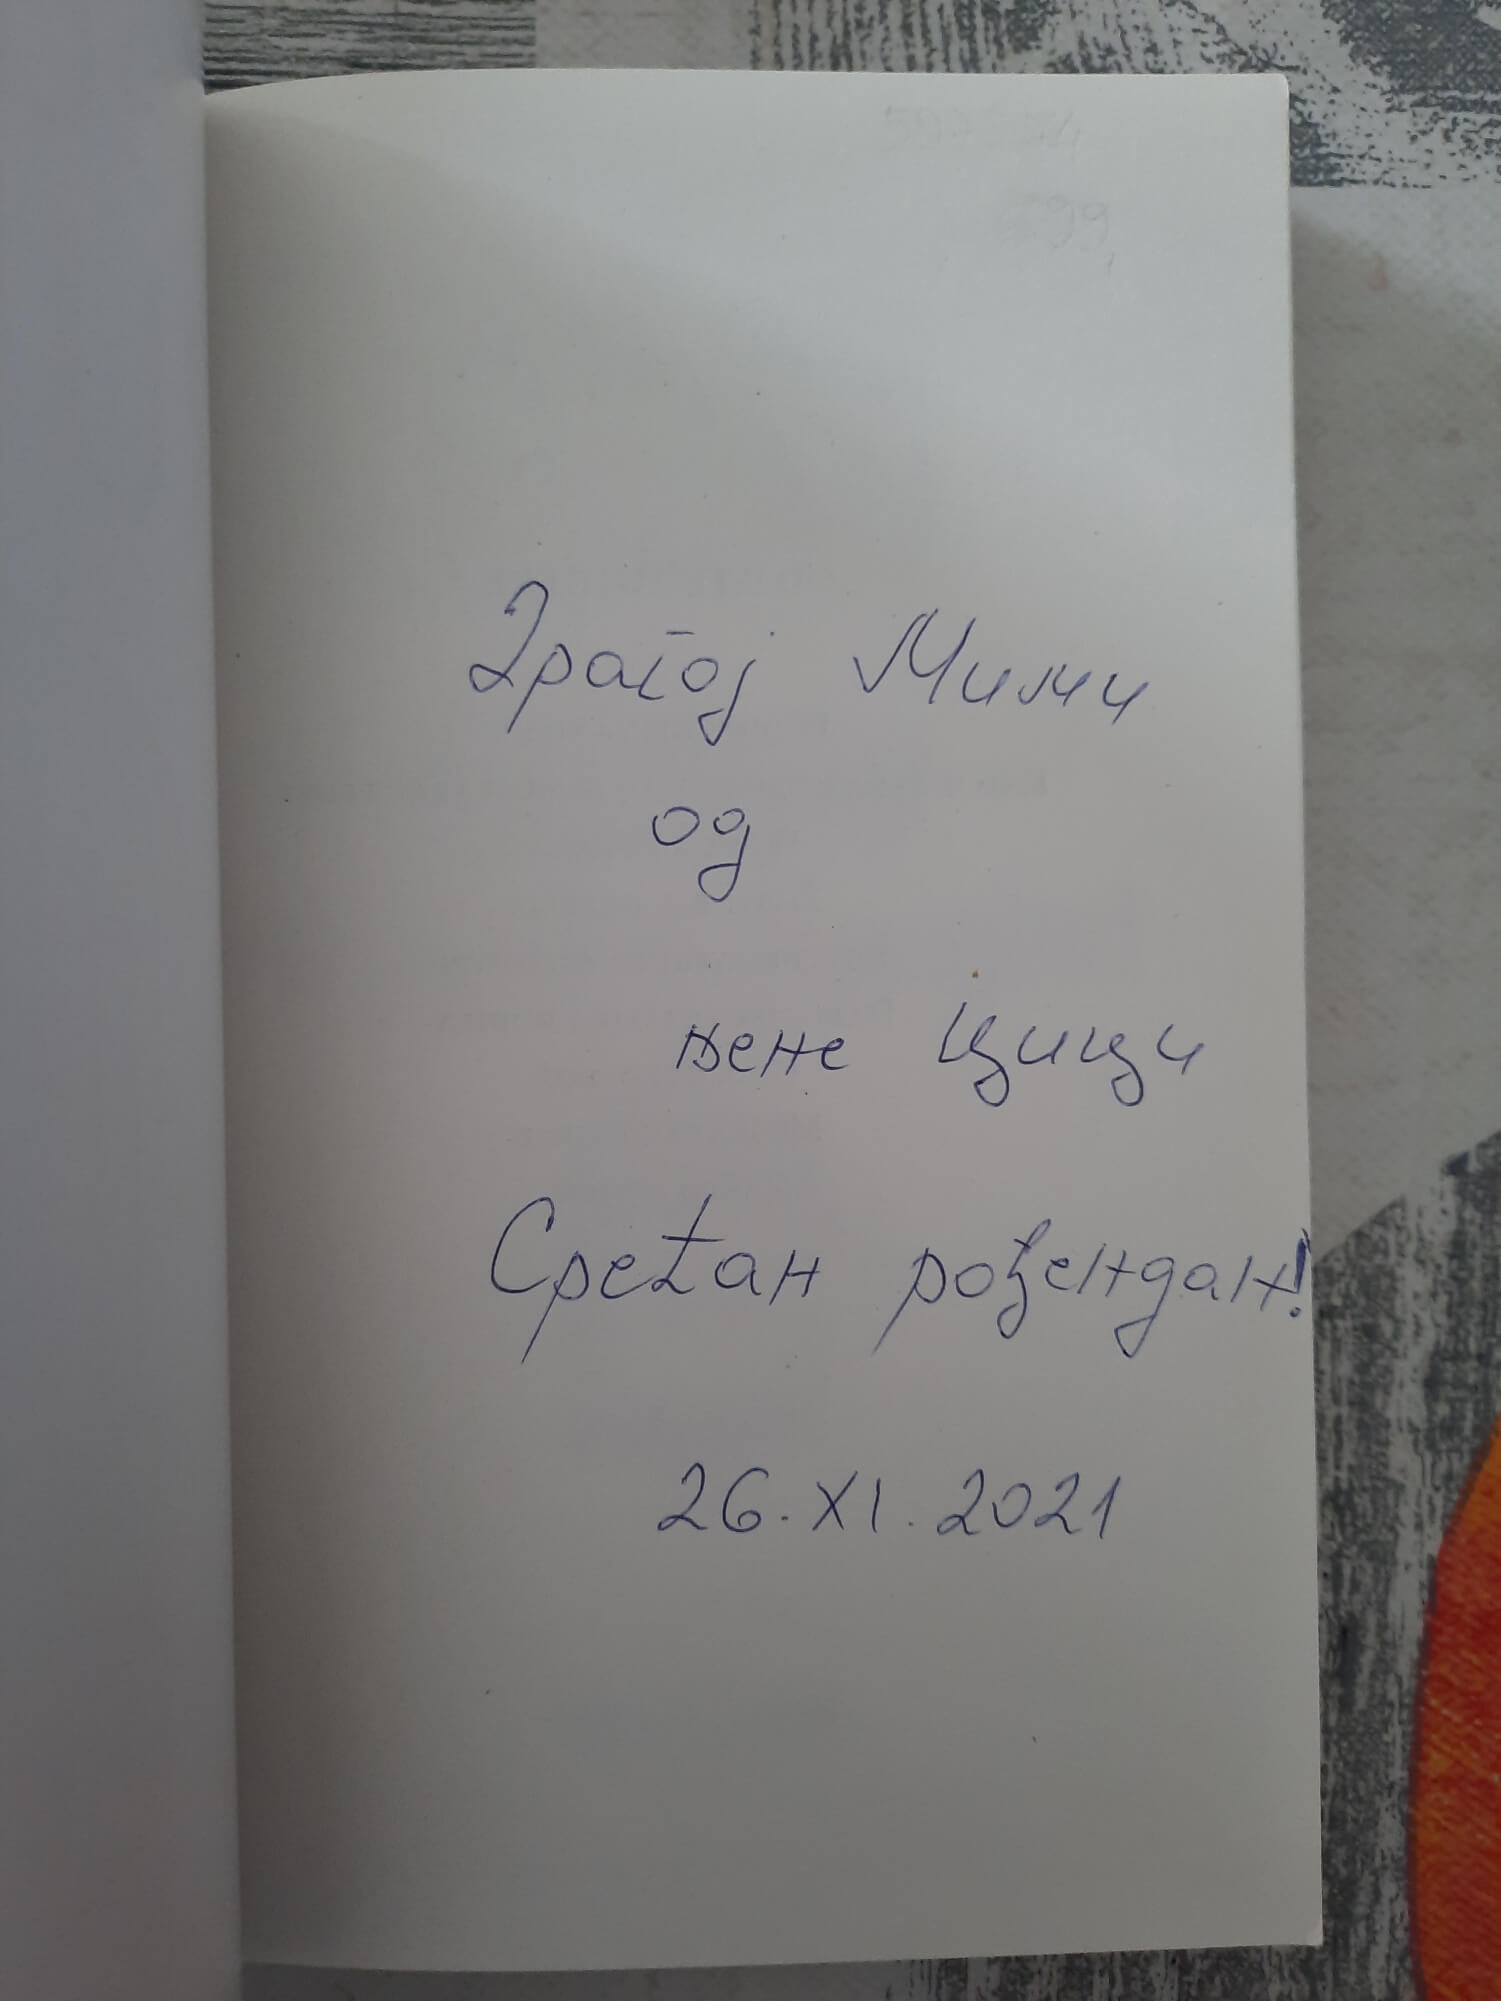 Драгој Мими
од
њене Цици
Срећан рођендан!
26. XI. 2021